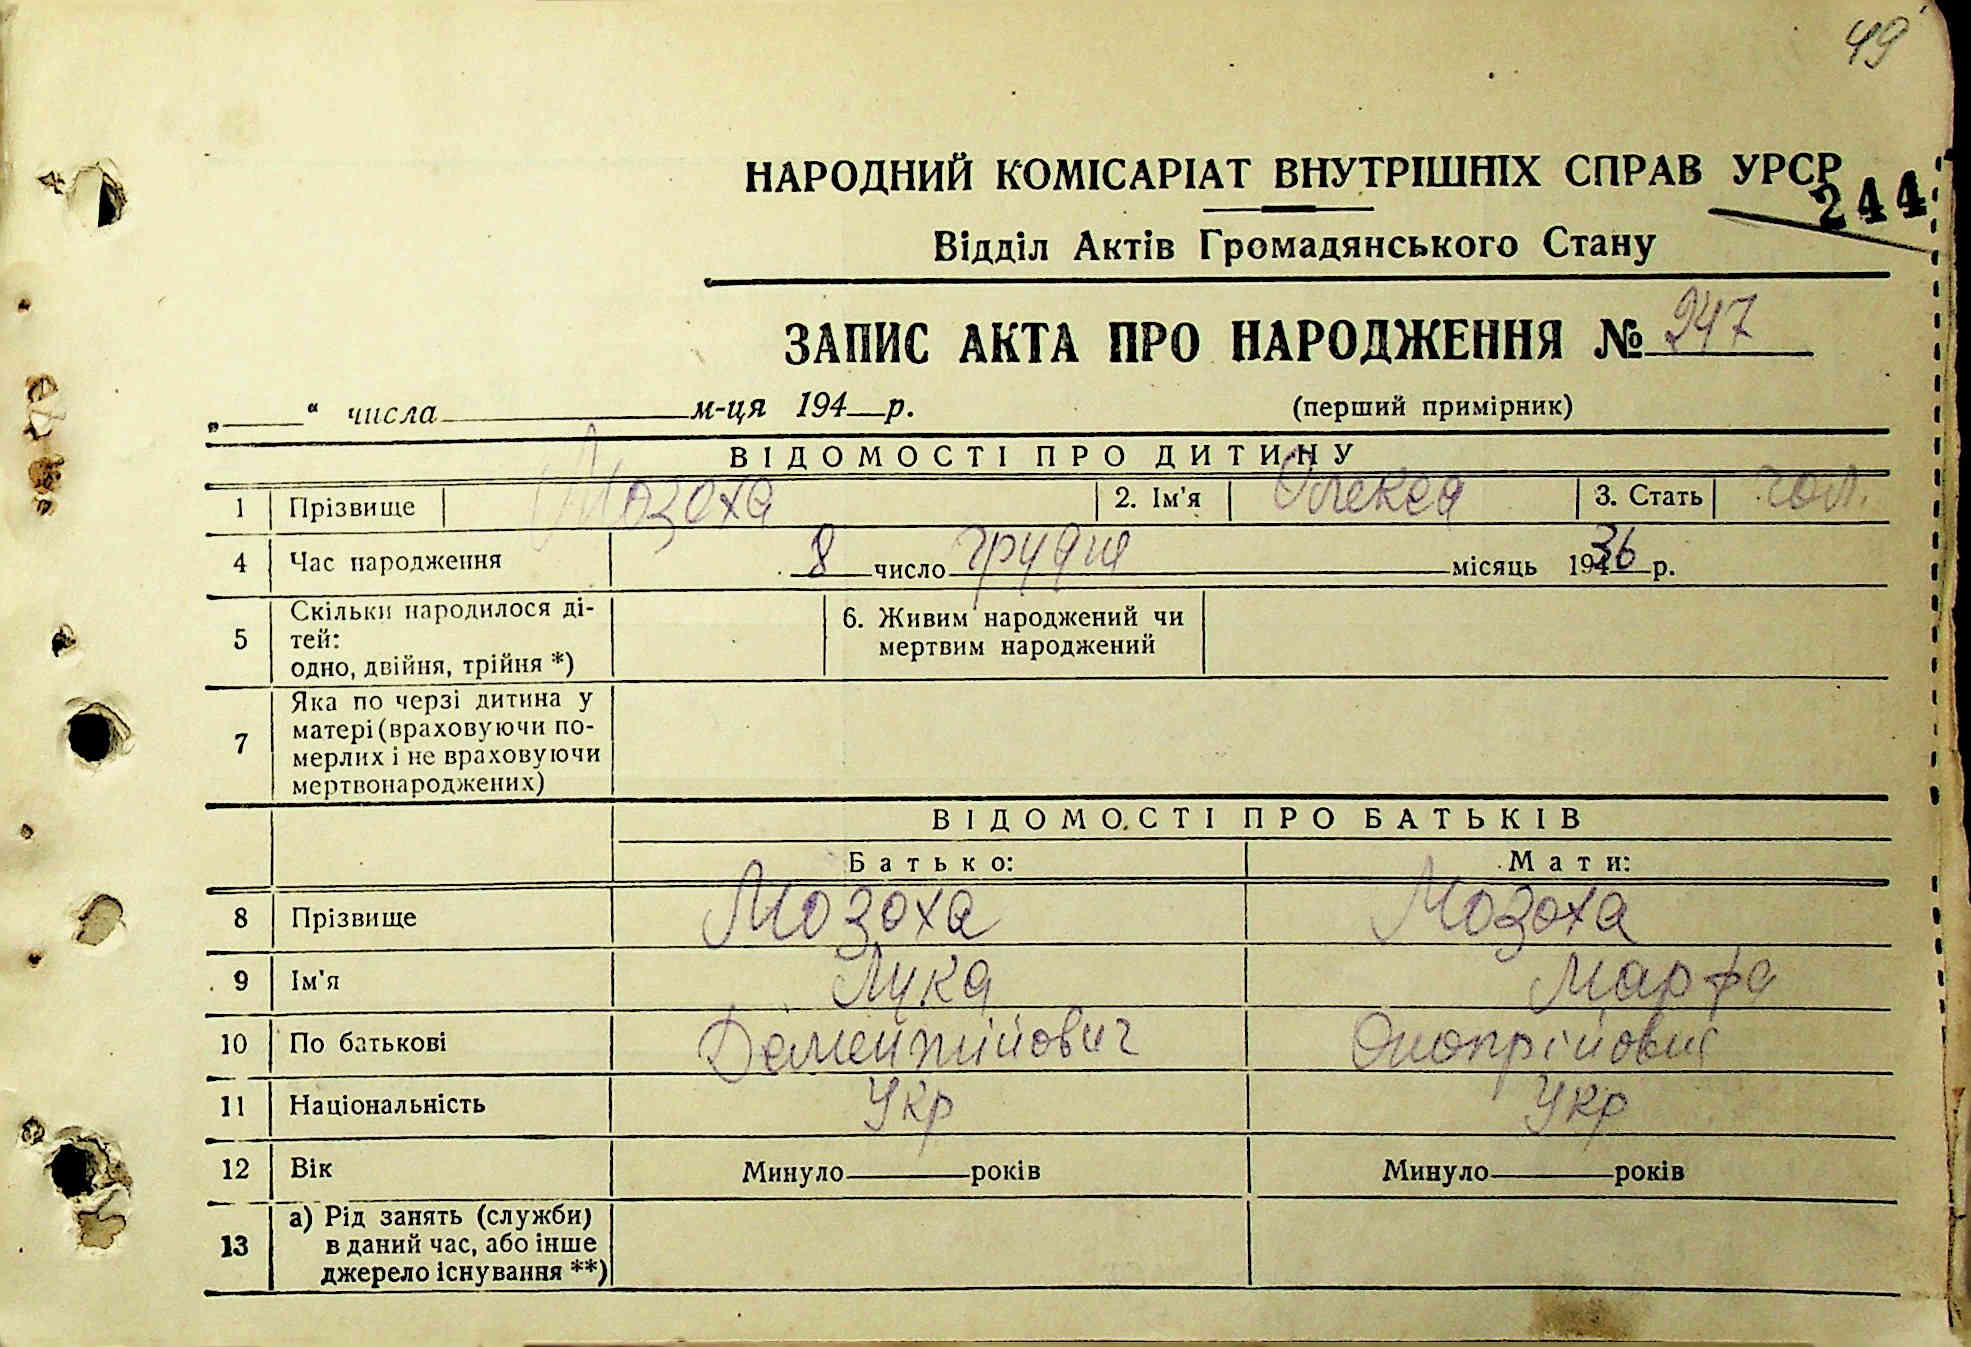 49
НАРОДНИЙ КОМІСАРІАТ ВНУТРІШНІХ СПРАВ УРСР
244
Відділ Актів Громадянського Стану
ЗАПИС АКТА ПРО НАРОДЖЕННЯ № 247
„____“ числа ____ м-ця 194__р. (перший примірник)
ВІДОМОСТІ ПРО ДИТИНУ
1 Прізвище Мозоха 2. Ім'я Олекса 3. Стать чол.
4 Час народження 8 число грудня місяць 1936 р.
5 Скільки народилося ді-
тей:
одно, двійня, трійня *)
6. Живим народжений чи
мертвим народжений
7 Яка по черзі дитина у
матері (враховуючи по-
мерлих і не враховуючи
мертвонароджених)
ВІДОМОСТІ ПРО БАТЬКІВ
Батько: Мати:
8 Прізвище Мозоха Мозоха
9 Ім'я Лука Марфа
10 По батькові Дементійович Онопрійовна
11 Національність Укр Укр
12 Вік Минуло____років Минуло____років
13 а) Рід занять (служби)
в даний час, або інше
джерело існування **)